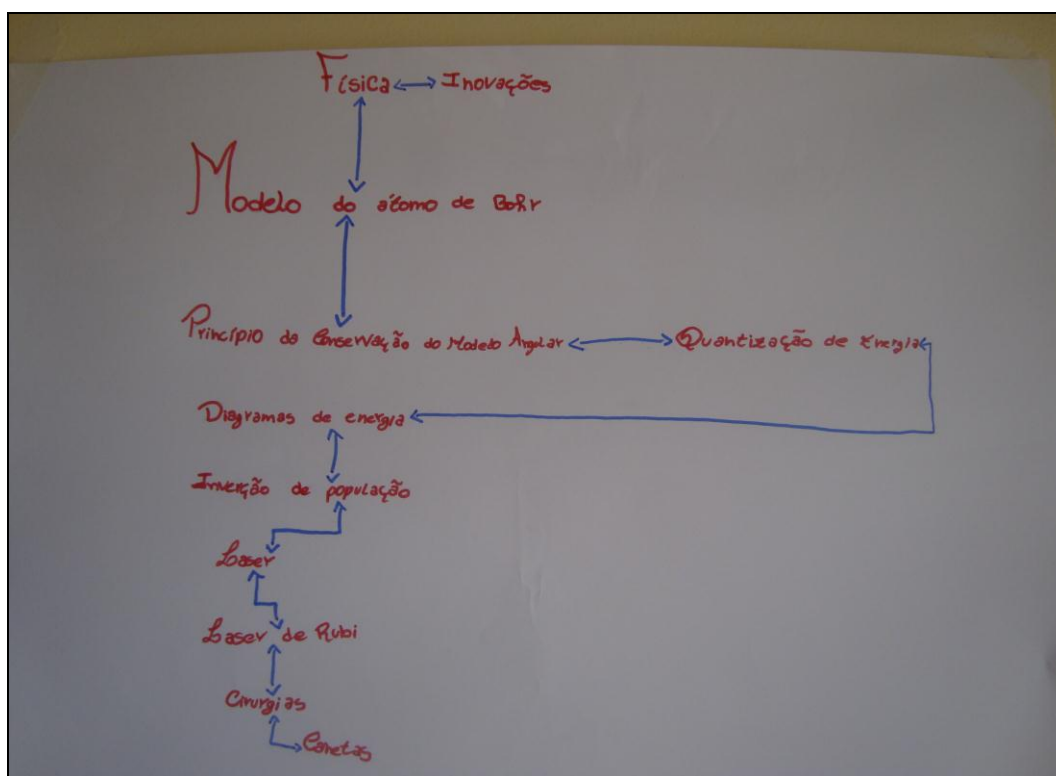 Física Inovações
Modelo do átomo de Bohr
Princípio da Conservação do Modelo Angular Quantização de Energia
Diagramas de energia
Inverção de população
Laser
Laser de Rubi
Cirurgias
Canetas